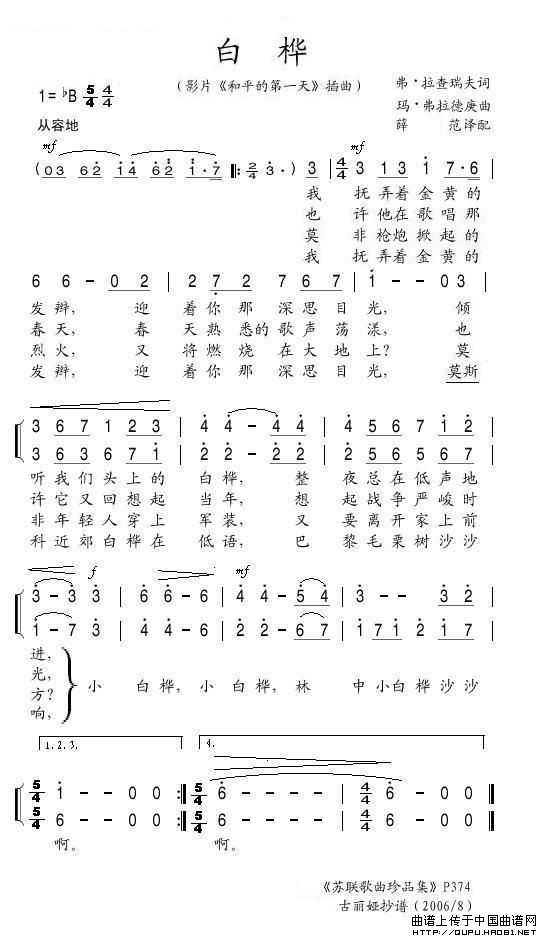 白 桦
(影片《和平的第一天》插曲)
弗·拉查瑞夫词
玛·弗拉德庚曲
薛 范译配
1=♭B 5/4 4/4
从容地
mf mf
(03 62 14 62 1·7 ‖: 2/4 3·) 3 | 4/4 3 13 1 7·6 |
我 抚弄着金黄的
也 许他在歌唱那
莫 非枪炮掀起的
我 抚弄着金黄的
6 6 - 02 | 2 72 7 67 | 1 - - 03 |
发辫, 迎 着你那深思目光, 倾
春天, 春 天熟悉的歌声荡漾, 也
烈火, 又 将燃烧在大地上? 莫
发辫, 迎 着你那深思目光, 莫斯
3 67 1 23 | 4 4 - 44 | 45 67 12 |
3 63 67 1 | 2 2 - 22 | 25 67 12 |
听我们头上的 白桦, 整 夜总在低声地
许它又回想起 当年, 想 起战争严峻时
非年轻人穿上 军装, 又 要离开家上前
科近郊白桦在 低语, 巴 黎毛栗树沙沙
f mf
3 - 3 3 | 6 6 - 6 | 4 4 - 54 | 3 - - 32 |
1 - 7 3 | 4 4 - 6 | 2 2 - 67 | 1 71 2 17 |
进,
光,
方?
响,
小 白桦, 小 白桦, 林 中小白桦沙沙
1. 2. 3. 4.
5/4 1 - - 0 0 :‖ 5/4 6 - - - - | 4/4 6 - 0 0 ‖
5/4 6 - - 0 0 :‖ 5/4 6 - - - - | 4/4 6 - 0 0 ‖
啊。 啊。
《苏联歌曲珍品集》P374
古丽娅抄谱(2006/8)
曲谱上传于中国曲谱网
HTTP://QUPU.HAO81.NET